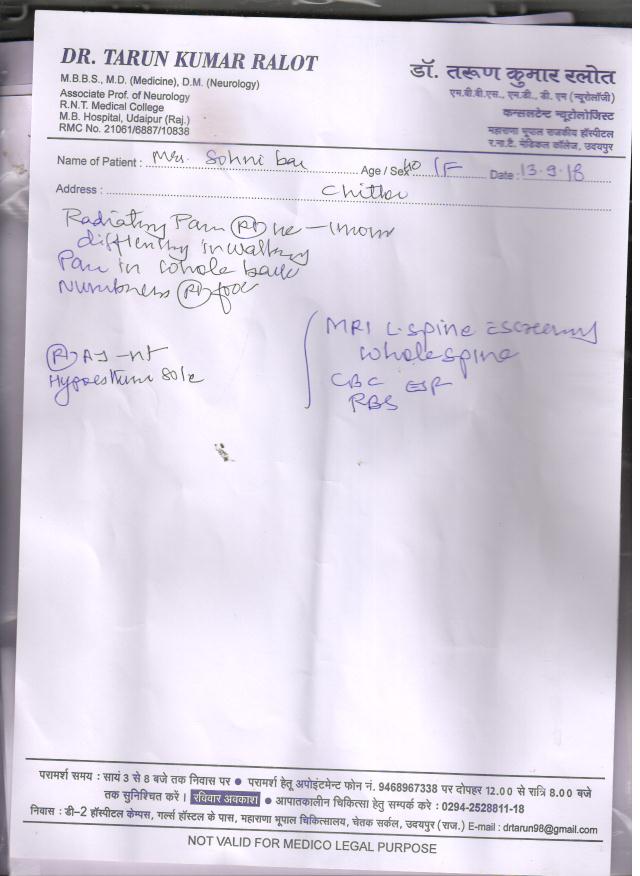 DR. TARUN KUMAR RALOT
M.B.B.S., M.D. (Medicine), D.M. (Neurology)
Associate Prof. of Neurology
R.N.T. Medical College
M.B. Hospital, Udaipur (Raj.)
RMC No. 21061/6887/10838
डॉ. तरूण कुमार रलोत
एम.बी.बी.एस., एम.डी., डी. एम (न्यूरोलॉजी)
कन्सलटेन्ट न्यूरोलोजिस्ट
महाराणा भूपाल राजकीय हॉस्पीटल
र.ना.टै. मेडिकल कॉलेज, उदयपुर
Name of Patient : Mrs. Sohni bai Age / Sex 40 / F Date : 13.9.18
Address :
Radiating Pain (R)
difficulty in walking
Pain in whole back
Numbness (R) foot
(R) AJ
sole
MRI L-spine screening
whole spine
CBC ESR
RBS
परामर्श समय : सायं 3 से 8 बजे तक निवास पर ● परामर्श हेतु अपोइंटमेन्ट फोन नं. 9468967338 पर दोपहर 12.00 से रात्रि 8.00 बजे
तक सुनिश्चित करें । रविवार अवकाश ● आपातकालीन चिकित्सा हेतु सम्पर्क करे : 0294-2528811-18
निवास : डी-2 हॉस्पीटल केम्पस, गर्ल्स हॉस्टल के पास, महाराणा भूपाल चिकित्सालय, चेतक सर्कल, उदयपुर (राज.) E-mail : drtarun98@gmail.com
NOT VALID FOR MEDICO LEGAL PURPOSE